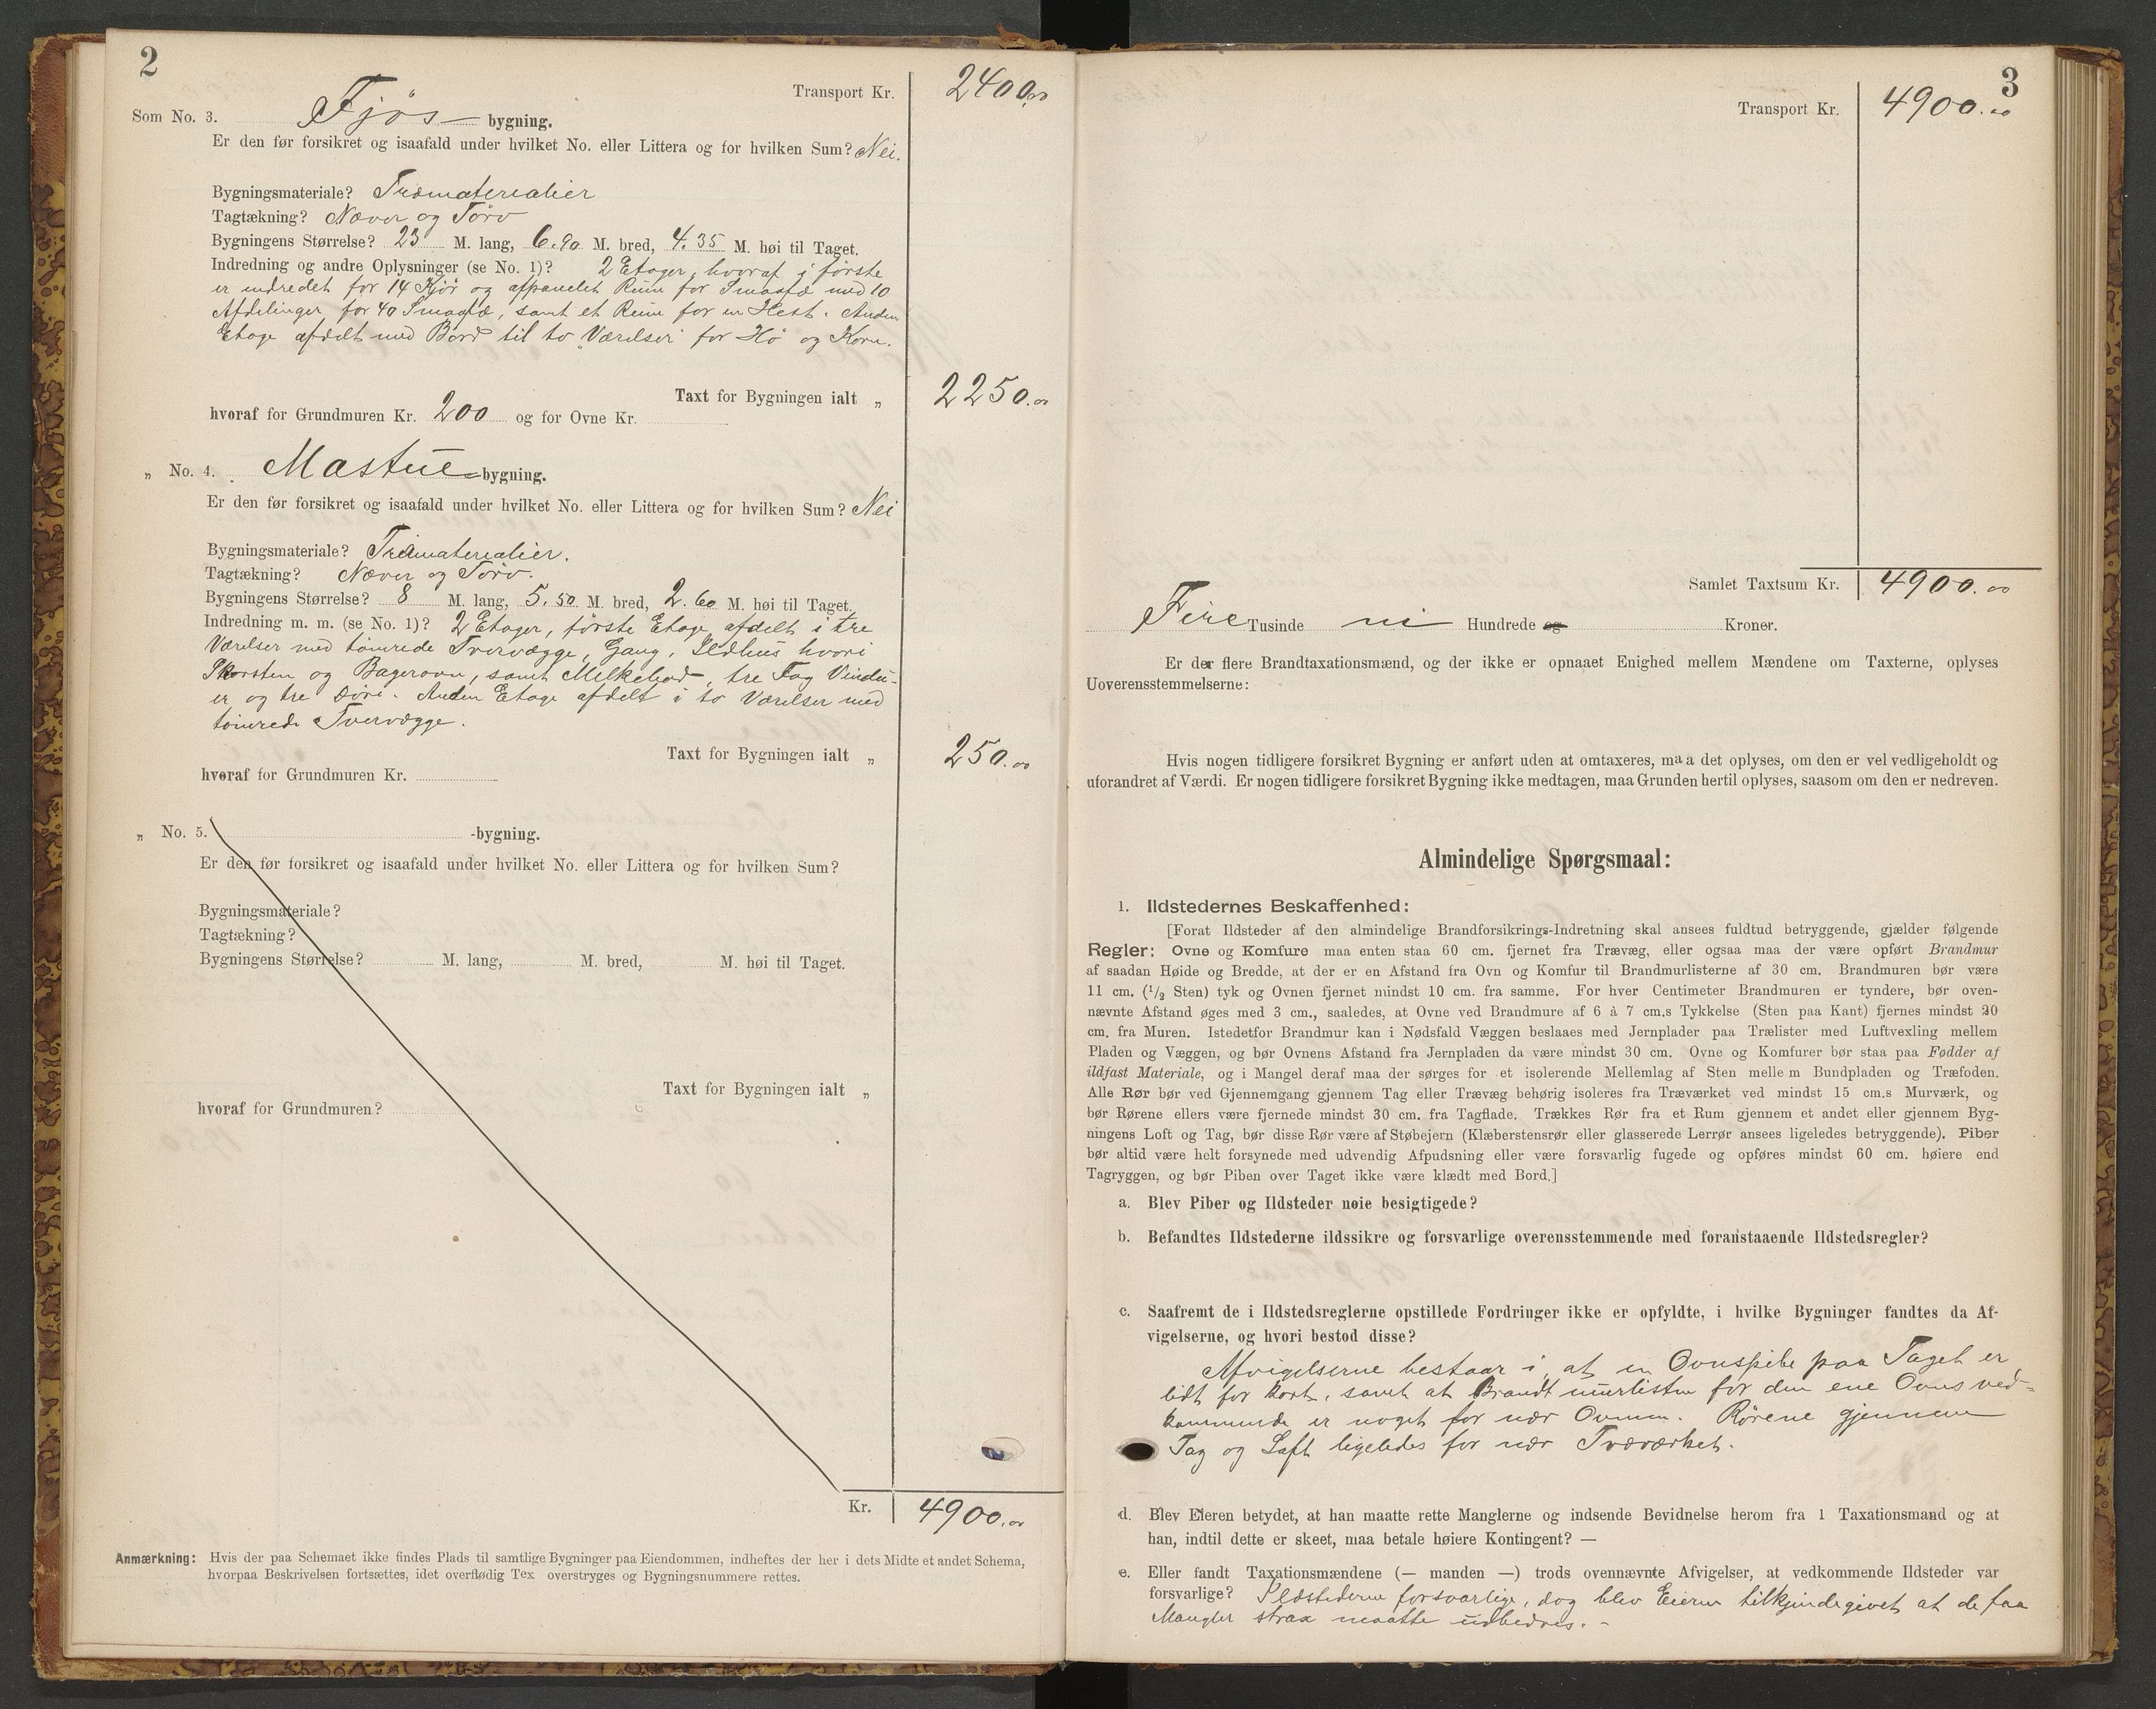 2
Transport Kr. 2400.00
Som No. 3. Fjøs- bygning.
Er den før forsikret og isaafald under hvilket No. eller Littera og for hvilken Sum? Nei.
Bygningsmateriale? Træmaterialier
Tagtækning? Næver og Tørv
Bygningens Størrelse? 23 M. lang, 6.90 M. bred, 4.35 M. høi til Taget.
Indredning og andre Oplysninger (se No. 1)? 2 Etager, hvoraf i første
er indredet for 14 Kjør og afpanelet Rum for Smaafæ med 10
Afdelinger for 40 Smaafæ, samt et Rum for en Hest. Anden
Etage afdelt med Bord til to Værelser for Hø og Korn.
Taxt for Bygningen ialt „ 2250.00
hvoraf for Grundmuren Kr. 200 og for Ovne Kr.
„ No. 4. Mastue-bygning.
Er den før forsikret og isaafald under hvilket No. eller Littera og for hvilken Sum? Nei
Bygningsmateriale? Træmaterialier.
Tagtækning? Næver og Tørv.
Bygningens Størrelse? 8 M. lang, 5.50 M. bred, 2.60 M. høi til Taget.
Indredning m. m. (se No. 1)? 2 Etager, første Etage afdelt i tre
Værelser med tømrede Tvervægge, Gang, Ildhus hvori
Skorsten og Bagerovn, samt Melkebod, tre Fag Vindu-
er og tre Døre. Anden Etage afdelt i to Værelser med
tømrede Tvervægge.
Taxt for Bygningen ialt „ 250.00
hvoraf for Grundmuren Kr.
„ No. 5. -bygning.
Er den før forsikret og isaafald under hvilket No. eller Littera og for hvilken Sum?
Bygningsmateriale?
Tagtækning?
Bygningens Størrelse? M. lang, M. bred, M. høi til Taget.
Taxt for Bygningen ialt „
hvoraf for Grundmuren?
Kr. 4900.00
Anmærkning: Hvis der paa Schemaet ikke findes Plads til samtlige Bygninger paa Eiendommen, indheftes der her i dets Midte et andet Schema,
hvorpaa Beskrivelsen fortsættes, idet overflødig Tex overstryges og Bygningsnummere rettes.
3
Transport Kr. 4900.00
Samlet Taxtsum Kr. 4900.00
Fire Tusinde ni Hundrede og Kroner.
Er der flere Brandtaxationsmænd, og der ikke er opnaaet Enighed mellem Mændene om Taxterne, oplyses
Uoverensstemmelserne:
Hvis nogen tidligere forsikret Bygning er anført uden at omtaxeres, maa det oplyses, om den er vel vedligeholdt og
uforandret af Værdi. Er nogen tidligere forsikret Bygning ikke medtagen, maa Grunden hertil oplyses, saasom om den er nedreven.
Almindelige Spørgsmaal:
1. Ildstedernes Beskaffenhed:
[Forat Ildsteder af den almindelige Brandforsikrings-Indretning skal ansees fuldtud betryggende, gjælder følgende
Regler: Ovne og Komfure maa enten staa 60 cm. fjernet fra Trævæg, eller ogsaa maa der være opført Brandmur
af saadan Høide og Bredde, at der er en Afstand fra Ovn og Komfur til Brandmurlisterne af 30 cm. Brandmuren bør være
11 cm. (1/2 Sten) tyk og Ovnen fjernet mindst 10 cm. fra samme. For hver Centimeter Brandmuren er tyndere, bør oven-
nævnte Afstand øges med 3 cm., saaledes, at Ovne ved Brandmure af 6 à 7 cm.s Tykkelse (Sten paa Kant) fjernes mindst 20
cm. fra Muren. Istedetfor Brandmur kan i Nødsfald Væggen beslaaes med Jernplader paa Trælister med Luftvexling mellem
Pladen og Væggen, og bør Ovnens Afstand fra Jernpladen da være mindst 30 cm. Ovne og Komfurer bør staa paa Fødder af
ildfast Materiale, og i Mangel deraf maa der sørges for et isolerende Mellemlag af Sten mellem Bundpladen og Træfoden.
Alle Rør bør ved Gjennemgang gjennem Tag eller Trævæg behørig isoleres fra Træværket ved mindst 15 cm.s Murværk, og
bør Rørene ellers være fjernede mindst 30 cm. fra Tagflade. Trækkes Rør fra et Rum gjennem et andet eller gjennem Byg-
ningens Loft og Tag, bør disse Rør være af Støbejern (Klæberstensrør eller glasserede Lerrør ansees ligeledes betryggende). Piber
bør altid være helt forsynede med udvendig Afpudsning eller være forsvarlig fugede og opføres mindst 60 cm. høiere end
Tagryggen, og bør Piben over Taget ikke være klædt med Bord.]
a. Blev Piber og Ildsteder nøie besigtigede?
b. Befandtes Ildstederne ildssikre og forsvarlige overensstemmende med foranstaaende Ildstedsregler?
c. Saafremt de i Ildstedsreglerne opstillede Fordringer ikke er opfyldte, i hvilke Bygninger fandtes da Af-
vigelserne, og hvori bestod disse?
Afvigelserne bestaar i, at en Ovnspibe paa Taget er
lidt for kort, samt at Brandtmurlisten for den ene Ovns ved-
kommende er noget for nær Ovnen. Rørene gjennem
Tag og Loft ligeledes for nær Træværket.
d. Blev Eieren betydet, at han maatte rette Manglerne og indsende Bevidnelse herom fra 1 Taxationsmand og at
han, indtil dette er skeet, maa betale høiere Kontingent? —
e. Eller fandt Taxationsmændene (— manden —) trods ovennævnte Afvigelser, at vedkommende Ildsteder var
forsvarlige? Ildstederne forsvarlige, dog blev Eieren tilkjendegivet at de faa
Mangler strax maatte udbedres. -